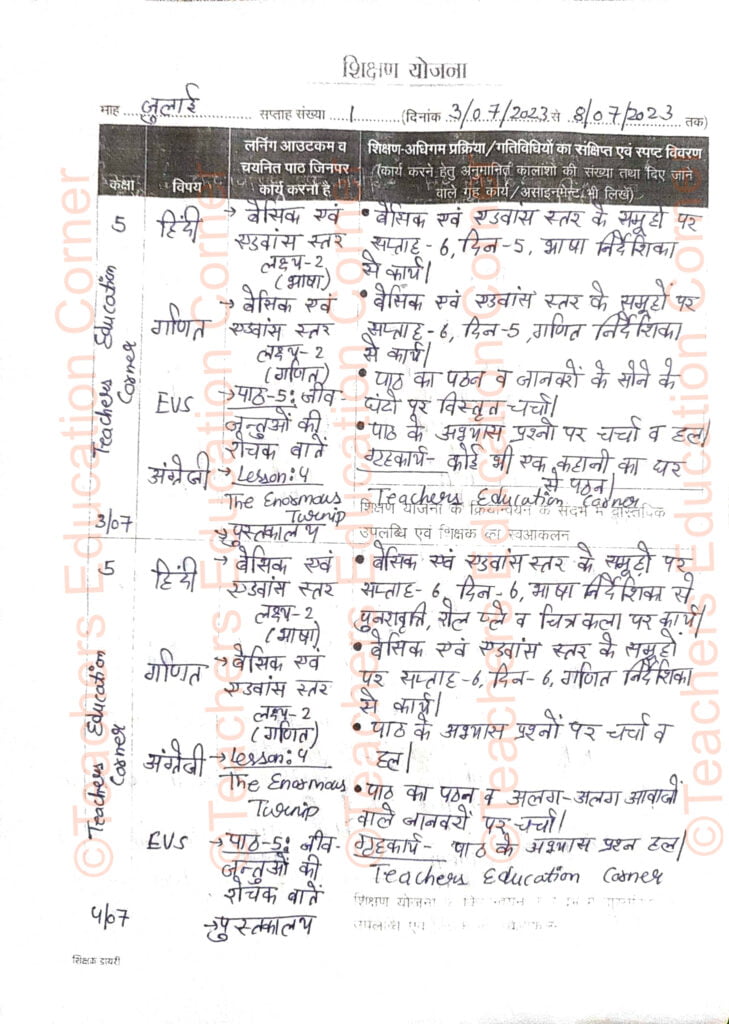 शिक्षण योजना
माह जुलाई सप्ताह संख्या 1 (दिनांक 3/07/2023 से 8/07/2023 तक)
कक्षा
विषय
लर्निंग आउटकम व
चयनित पाठ जिनपर
कार्य करना है
शिक्षण-अधिगम प्रक्रिया/गतिविधियों का संक्षिप्त एवं स्पष्ट विवरण
(कार्य करने हेतु अनुमानित कालांशों की संख्या तथा दिए जाने
वाले गृह कार्य/असाइनमेंट भी लिखें)
5
Teachers Education
Corner
3/07
हिंदी
→ बैसिक एवं
एडवांस स्तर
लक्ष्य-2
(भाषा)
• बैसिक एवं एडवांस स्तर के समूहों पर
सप्ताह-6, दिन-5, भाषा निर्देशिका
से कार्य।
गणित
→ बैसिक एवं
एडवांस स्तर
लक्ष्य-2
(गणित)
• बैसिक एवं एडवांस स्तर के समूहों पर
सप्ताह-6, दिन-5, गणित निर्देशिका
से कार्य।
EVS
→ पाठ-5: जीव-
जन्तुओं की
रोचक बातें
• पाठ का पठन व जानवरों के सोने के
घंटों पर विस्तृत चर्चा।
अंग्रेजी
→ Lesson: 4
The Enormous
Turnip
→ पुस्तकालय
• पाठ के अभ्यास प्रश्नों पर चर्चा व हल।
गृहकार्य- कोई भी एक कहानी का घर
से पठन।
Teachers Education Corner
शिक्षण योजना के क्रियान्वयन के संदर्भ में वास्तविक
उपलब्धि एवं शिक्षक का स्वआकलन
5
Teachers Education
Corner
4/07
हिंदी
→ बैसिक एवं
एडवांस स्तर
लक्ष्य-2
(भाषा)
• बैसिक एवं एडवांस स्तर के समूहों पर
सप्ताह-6, दिन-6, भाषा निर्देशिका से
पुनरावृत्ति, रोल प्ले व चित्रकला पर कार्य।
गणित
→ बैसिक एवं
एडवांस स्तर
लक्ष्य-2
(गणित)
• बैसिक एवं एडवांस स्तर के समूहों
पर सप्ताह-6, दिन-6, गणित निर्देशिका
से कार्य।
अंग्रेजी
→ Lesson: 4
The Enormous
Turnip
• पाठ के अभ्यास प्रश्नों पर चर्चा व
हल।
EVS
→ पाठ-5: जीव-
जन्तुओं की
रोचक बातें
→ पुस्तकालय
• पाठ का पठन व अलग-अलग आवाजों
वाले जानवरों पर चर्चा।
गृहकार्य- पाठ के अभ्यास प्रश्न हल।
Teachers Education Corner
शिक्षण योजना
उपलब्धि एवं
शिक्षक डायरी
©Teachers Education Corner
©Teachers Education Corner
©Teachers Education Corner
©Teachers Education Corner
©Teachers Education Corner